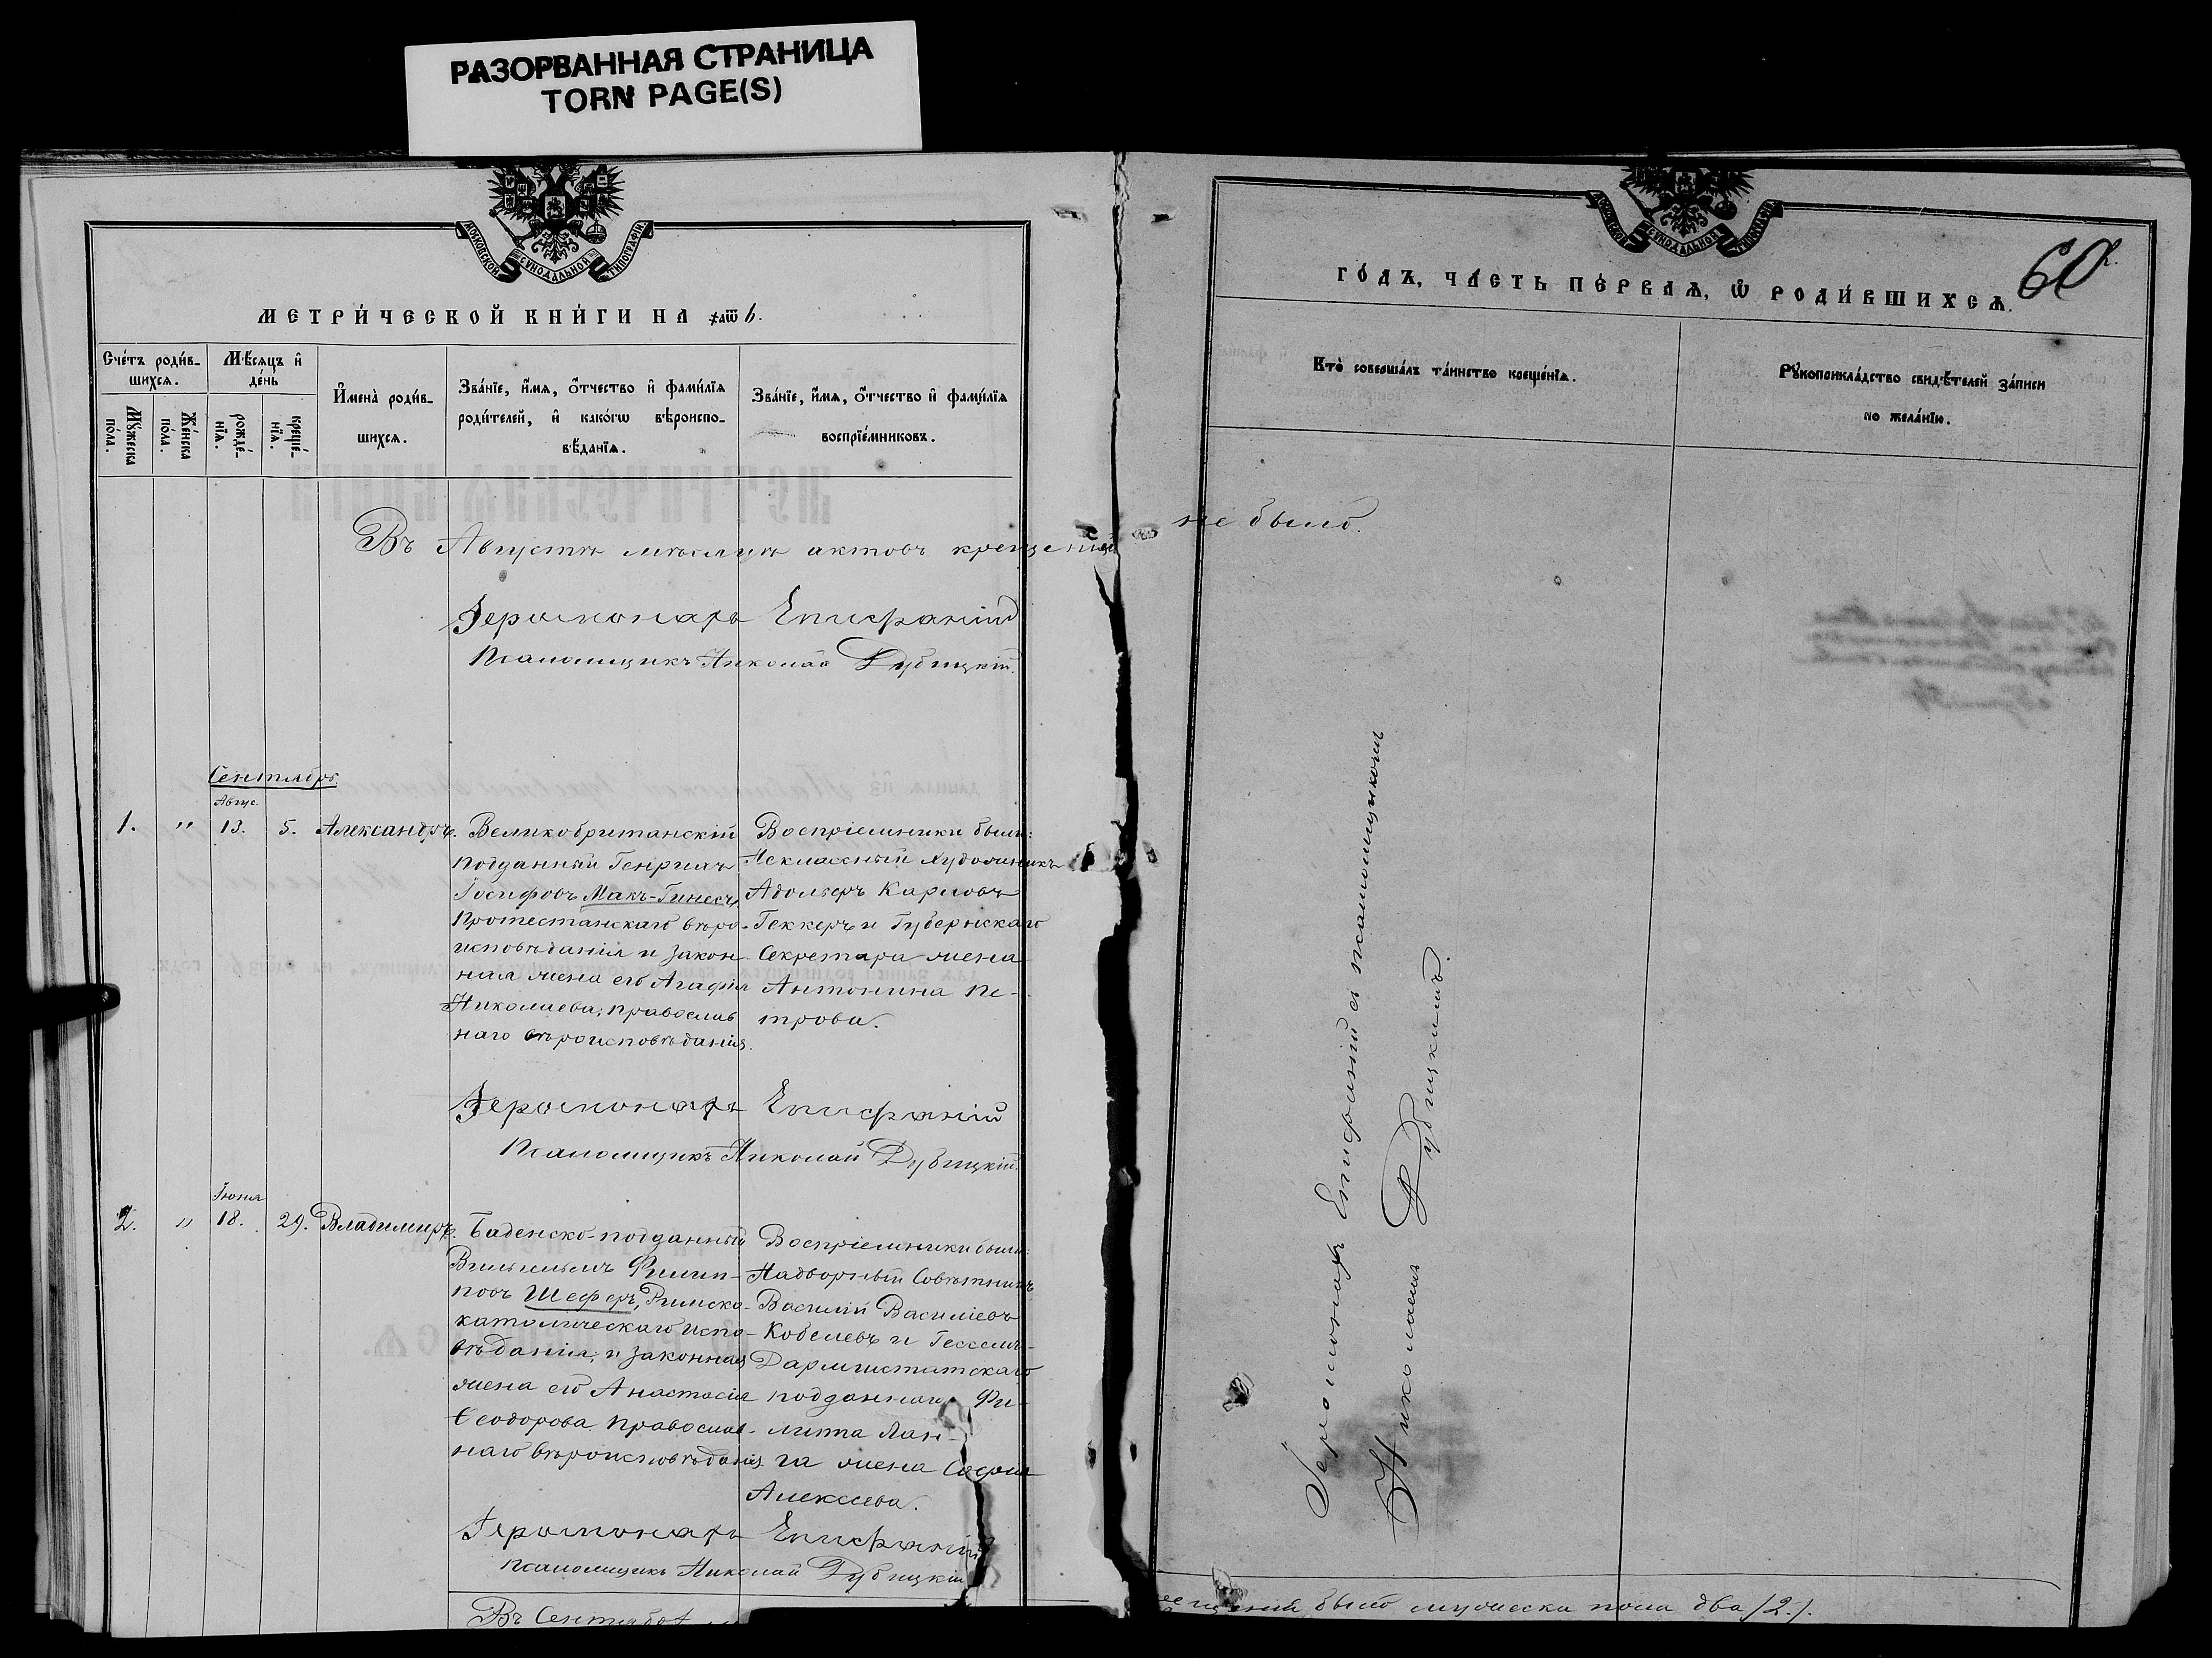 РАЗОРВАННАЯ СТРАНИЦА
TORN PAGE(S)
МОСКОВСКОЙ СѴНОДАЛЬНОЙ ТИПОГРАФІИ
МЕТРИ́ЧЕСКОЙ КНИ́ГИ НА ҂аѿ6.
Сче́тъ роди́в-
шихсѧ.
Мѣ́сѧцъ и҆
де́нь
Мꙋ́жеска
по́ла.
Же́нска
по́ла.
рожде́-
нїѧ.
креще́-
нїѧ.
И҆мена̀ роди́в-
шихсѧ.
Зва́нїе, и҆́мѧ, ѻ҆́тчество и҆ фами́лїѧ
роди́телей, и҆ како́гѡ вѣроиспо-
вѣ́данїѧ.
Зва́нїе, и҆́мѧ, ѻ҆́тчество и҆ фами́лїѧ
воспрїе́мниковъ.
Въ Августѣ мѣсяцѣ актовъ крещенія
Іеромонахъ Епифаній
Псаломщикъ Николай Дубицкій.
Сентябрь.
Авгус.
1. " 13. 5. Александръ. Великобританскій
подданный Генрихъ
Іосифовъ Макъ-Гинесъ,
протестанскаго вѣро-
исповѣданія и закон-
ная жена его Агафія
Николаева, православ
наго вѣроисповѣданія.
Воспріемники были:
Неклассный художникъ
Адольфъ Карловъ
Геккеръ и Губернскаго
Секретаря жена
Антонина Пе-
трова.
Іеромонахъ Епифаній
Псаломщикъ Николай Дубицкій.
Іюня
2. " 18. 29. Владимиръ. Баденско-подданный
Вильгельмъ Филип-
повъ Шеферъ, Римско-
католическаго испо-
вѣданія, и законная
жена его Анастасія
Ѳеодорова православ-
наго вѣроисповѣданія
Воспріемники были:
Надворный Совѣтникъ
Василій Василіевъ
Кобелевъ и Гессенъ-
Дармштатскаго
подданнаго Фи-
липа Лан-
га жена Софія
Алексѣева.
Іеромонахъ Епифаній
Псаломщикъ Николай Дубицкій
Въ Сентябрѣ
МОСКОВСКОЙ СѴНОДАЛЬНОЙ ТИПОГРАФІИ
60
ГО́ДЪ, ЧА́СТЬ ПЕ́РВАѦ, Ѽ РОДИ́ВШИХСѦ.
Кто̀ соверша́лъ та́инство креще́нїѧ.
Рꙋкоприкла́дство свидѣ́телей за́писи
по жела́нїю.
не было.
Іеромонахъ Епифаній съ псаломщикомъ
Николаемъ Дубицкимъ.
было мужеска пола два /2/.